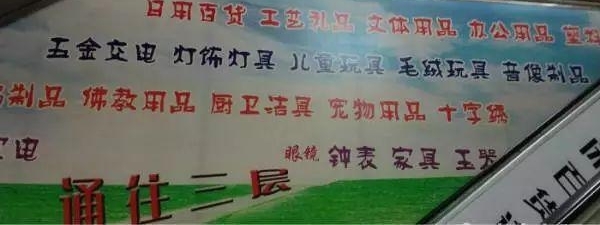 日用百货 工艺礼品 文体用品 办公用品
五金交电 灯饰灯具 儿童玩具 毛绒玩具 音像制品
制品 佛教用品 厨卫洁具 宠物用品 十字绣
电 眼镜 钟表 家具 玉器
通往三层